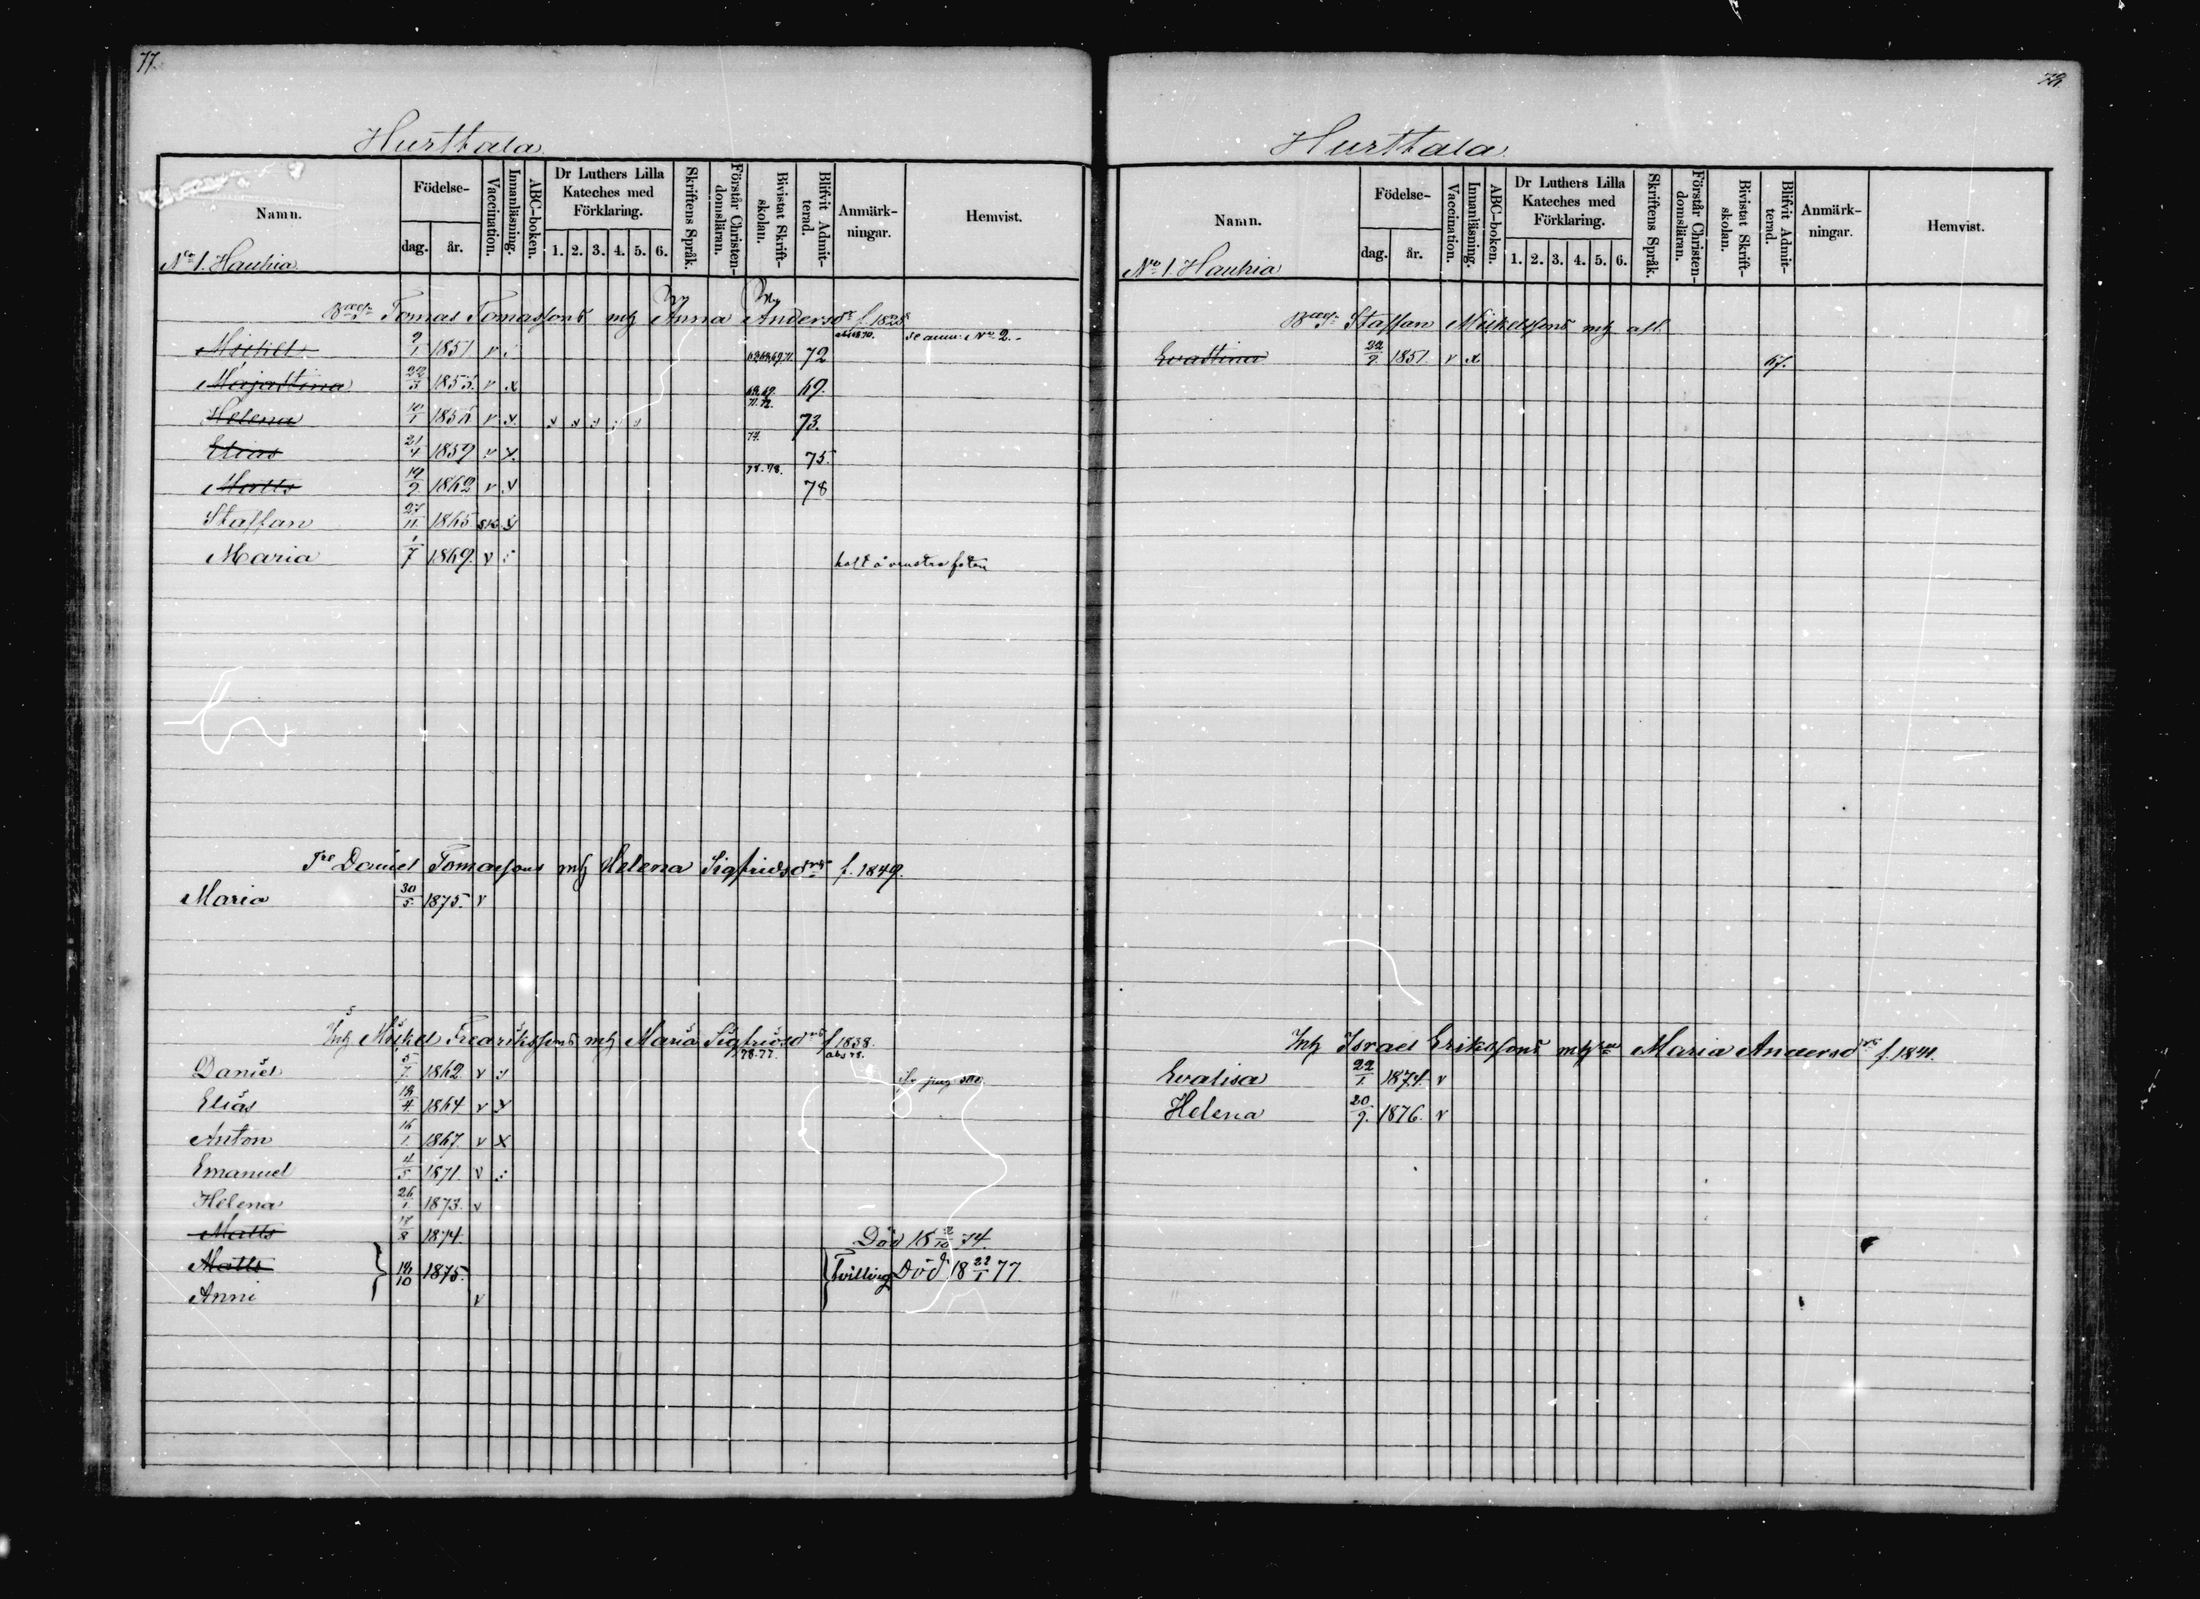 77.
Hurttala
Namn.
Födelse-
dag. år.
Vaccination.
Innanläsning.
ABC-boken.
Dr Luthers Lilla Kateches med Förklaring.
1. 2. 3. 4. 5. 6.
Skriftens Språk.
Förstår Christen-domsläran.
Bivistat Skrift-skolan.
Blifvit Admit-terad.
Anmärk-ningar.
Hemvist.
No 1. Hauhia
Tomas Tomassons Anna Andersdr f. 1825
Michel 2/1 1851 v 72
Majastina 22/3 1853. v x 69.
Helena 10/1 v x 73.
Elias 21/4 1859 v x 75.
Matts 19/9 1862 v x 78
Staffan 27/11 1865
Maria 1/7 1869. v halt å venstra foten
Daniel Tomassons Helena Sigfridsdr f. 1849.
Maria 30/5 1875. v
Inh Mickel Fredrikssons Maria Sigfridsdr f 1838.
78.77.
Daniel 5/7 1862 v
Elias 1864 v x
Anton 16/1 1867. v x
Emanuel 4/5 1871. v
Helena 26/1 1873. v
Matts 17/8 1874. Död 18 2/10 74.
Matts 1875. Tvilling Död 18 22/1 77
Anni v
78.
Hurttala
Namn.
Födelse-
dag. år.
Vaccination.
Innanläsning.
ABC-boken.
Dr Luthers Lilla Kateches med Förklaring.
1. 2. 3. 4. 5. 6.
Skriftens Språk.
Förstår Christen-domsläran.
Bivistat Skrift-skolan.
Blifvit Admit-terad.
Anmärk-ningar.
Hemvist.
No 1. Hauhia
Staffan Mickelssons
Evastina 22/9 1851. v x 67.
Inh Israel Erikssons Maria Andersdr f. 1841.
Evalisa 22/1 1874 v
Helena 20/9. 1876. v